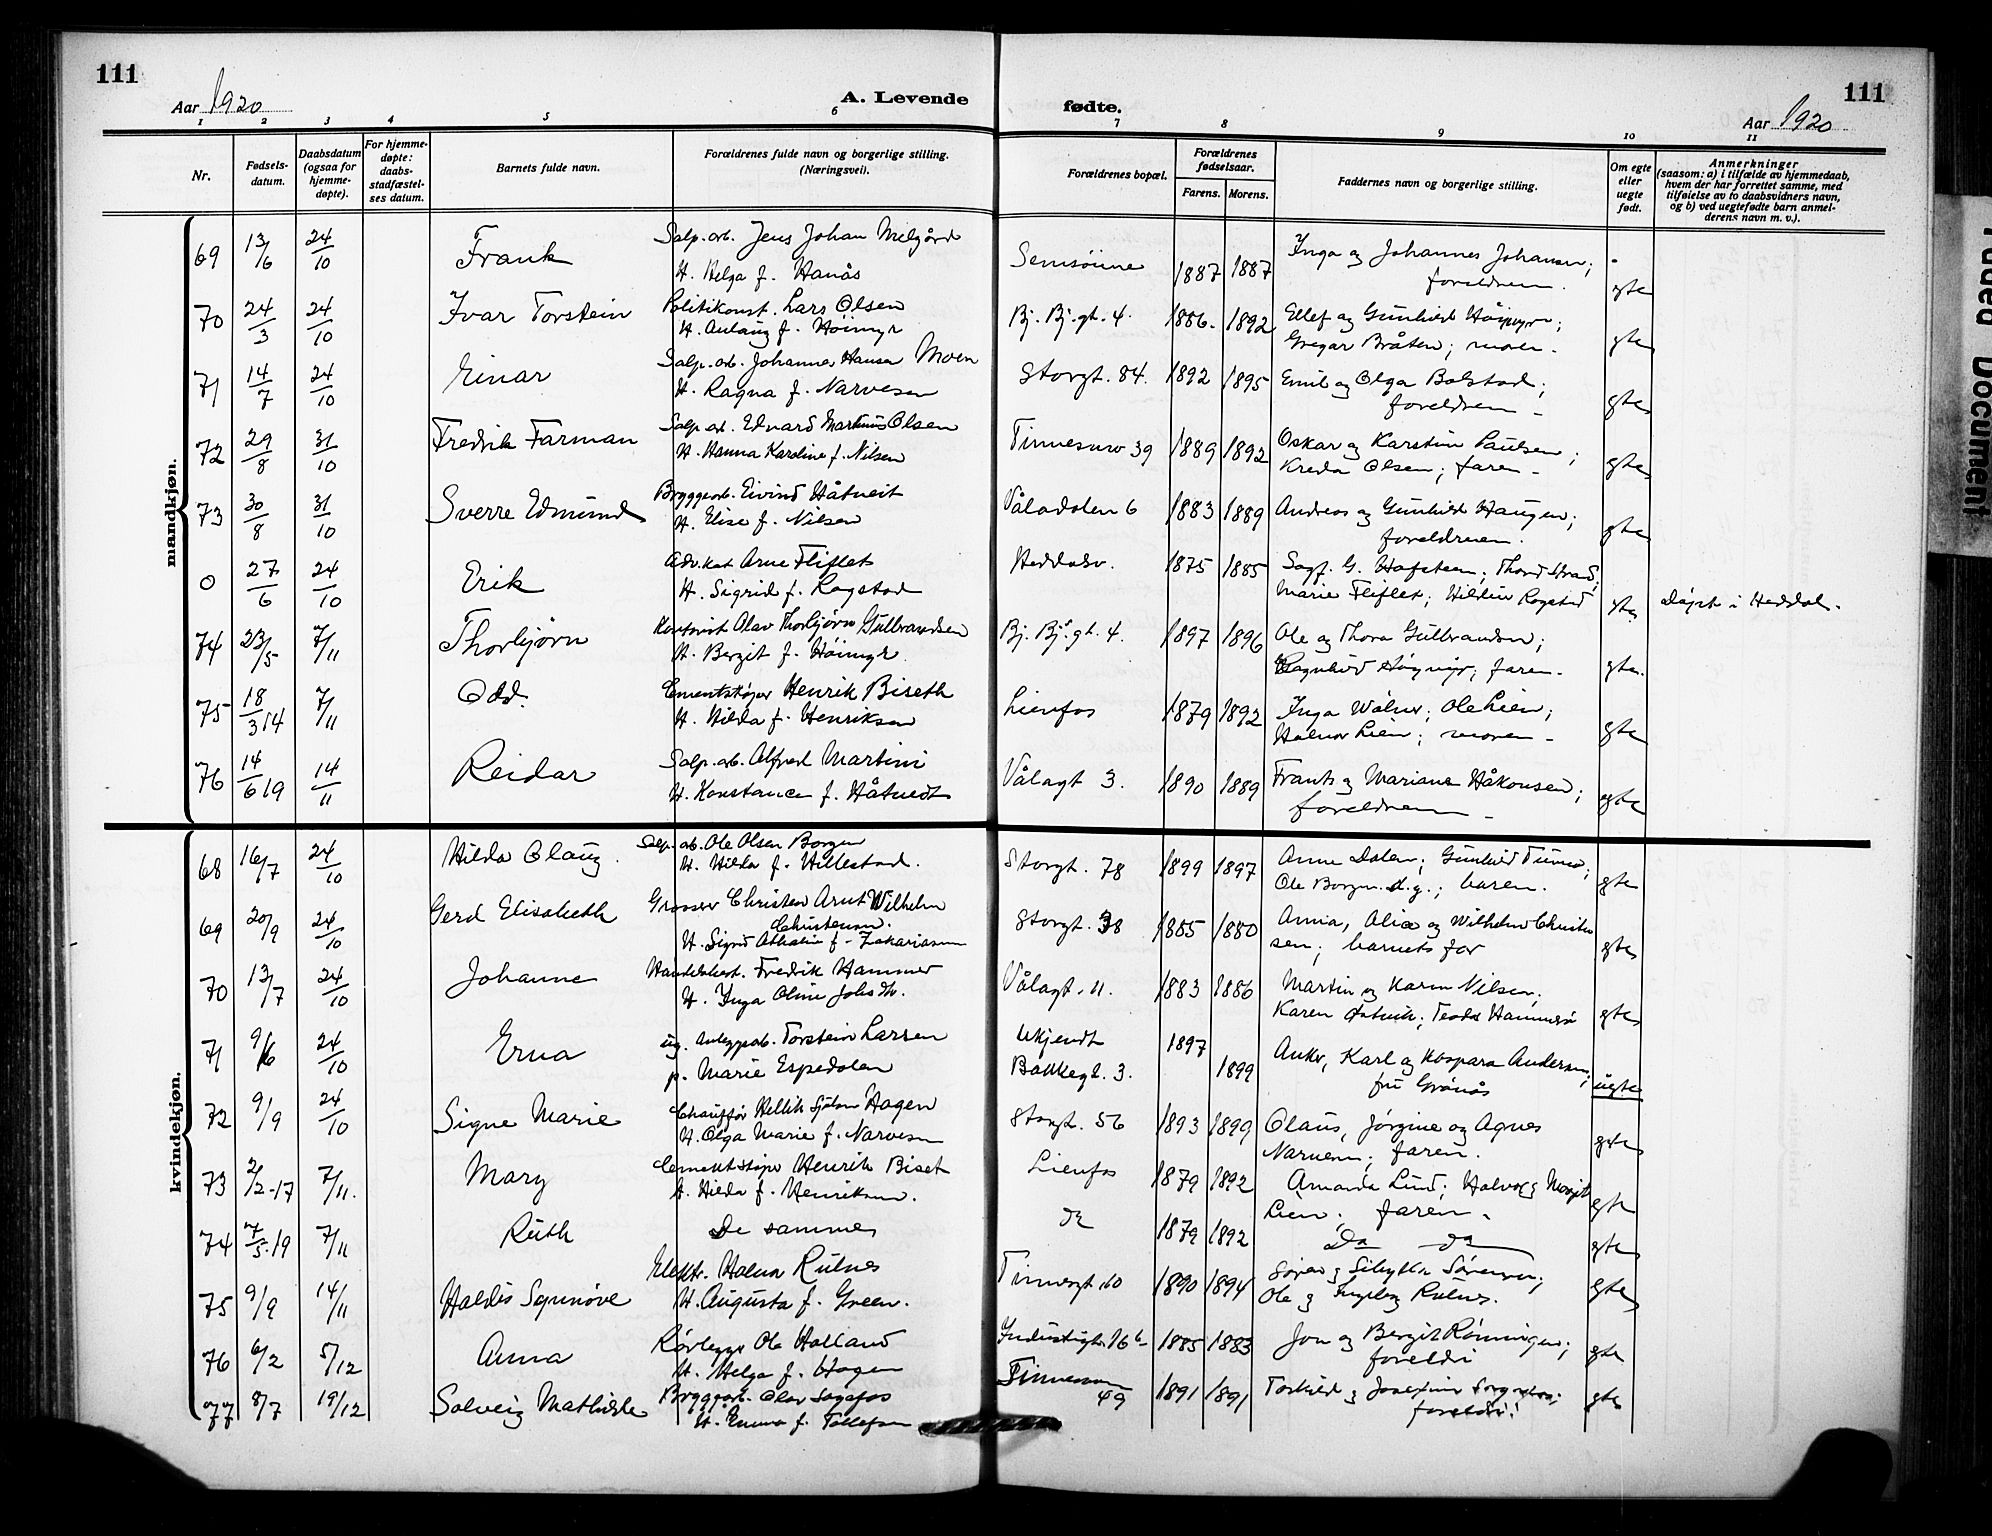 111
Aar 1920
A. Levende
fødte.
111
Aar 1920
1 2 3 4 5 6 7 8 9 10 11
Nr.
Fødsels-
datum.
Daabsdatum
(ogsaa for
hjemme-
døpte).
For hjemme-
døpte:
daabs-
stadfæstel-
ses datum.
Barnets fulde navn.
Forældrenes fulde navn og borgerlige stilling.
(Næringsvei).
Forældrenes bopæl.
Forældrenes
fødselsaar.
Farens. Morens.
Faddernes navn og borgerlige stilling.
Om egte
eller
uegte
født.
Anmerkninger
(saasom: a) i tilfælde av hjemmedaab,
hvem der har forrettet samme, med
tilføielse av to daabsvidners navn,
og b) ved uegtefødte barn anmel-
derens navn m. v.).
mandkjøn.
69 13/6 24/10 Frank Salp. arb. Jens Johan Melgård Semsøiene 1887 1887 Inga og Johannes Johansen;
H. Helga f. Hanås foreldrene. gte
70 24/3 24/10 Ivar Torstein Politikonst. Lars Olsen Bj. Bj. gt. 4. 1886. 1892 Ellef og Gunhild Høimyr;
H. Aulaug f. Høimyr Gregar Bråten; moren. gte
71 14/7 24/10 Einar Salp. arb. Johannes Hansen Moen Storgt. 84. 1892 1895 Emil og Olga Bolstad;
H. Ragna f. Narvesen foreldrene gte
72 29/8 31/10 Fredrik Farman Salp. arb. Edvard Martinus Olsen Tinnesmo 39 1889 1892 Oskar og Karstine Paulsen;
H. Hanna Karoline f. Nilsen Kreda Olsen; faren gte
73 30/8 31/10 Sverre Edmund Bryggearb. Eivind Håtveit Våladalen 6 1883 1889 Andreas og Gunhild Haugen;
H. Elise f. Nilsen foreldrene. gte
0 27/6 24/10 Erik Advokat Arne Fliflet Heddalsv. 1875 1885 Sagf. G. Hofsteen; Thord Strand;
H. Sigrid f. Rogstad Marie Fliflet; Hildur Rogstad gte Døpt i Heddal.
74 23/5 7/11 Thorbjørn Kontorist Olav Thorbjørn Gulbrandsen Bj. Bj. gt. 4. 1897 1896 Ole og Thora Gulbrandsen;
H. Bergit f. Høimyr Ragnhild Høymyr; faren. gte.
75 18/3 14 7/11 Odd. Cementstøper Henrik Biseth Lienfos 1879 1892 Inga Ole Lien;
H. Hilda f. Henriksen Halvor Lien; moren gte
76 14/6 19 14/11 Reidar Salp. arb. Alfred Martini Vålagt 3. 1890 1889 Frants og Mariane Håkonsen;
H. Konstance f. Håtvedt foreldrene gte
kvindekjøn.
68 16/7 24/10 Hilda Olaug. Salp. arb. Ole Olsen Borgen Storgt. 78 1899 1897 Anne Dalen; Gunhild Tinne;
H. Hilda f. Hillestad. Ole Borgen d.y.; faren. gte
69 20/9 24/10 Gerd Elisabeth Grosser Christen Arnt Wilhelm Storgt. 38 1885 1880 Anna, Alice og Wilhelm Christen
Christensen.
H. Sigrid Athalie f. Zakariasen sen; barnets far gte
70 13/7 24/10 Johanne Handelsbest. Fredrik Hammer Vålagt. 11. 1883 1886 Martin og Karen Nilsen;
H. Inga Oline Johs dtr. Karen gte
71 9/6 24/10 Erna ug. Anleggsarb. Torstein Larsen Ukjendt 1897 Anker, Karl og Kaspara Andersen;
p. Marie Espedalen Bakkegt. 3. 1899 fru Grånås uegte
72 9/9 24/10 Signe Marie Chauffør Kjetil Hagen Storgt. 56 1893 1899 Claus, Jørgine og Agnes
H. Olga Marie f. Narvesen Narvesen; faren. gte
73 2/2-17 7/11. Mary Cementstøper Henrik Biset Lienfos 1879 1892 Amanda Lund; Halvor og Margit
H. Hilda f. Henriksen. Lien; faren. gte
74 7/5-19 7/11 Ruth De samme do 1879 1892 Do do gte
75 9/9 14/11 Haldis Synnøve Elektr. Halvor Rulnes Tinnegt. 10 1890 1894 Søren og Sibylle Sørensen;
H. Augusta f. Green. Ole og Ingeborg Rulnes. gte
76 6/2 5/12 Anna Rørlegger Ole Holland Industrigt. 16 b 1885 1883 Jon og Bergit Rønningen;
H. Helga f. Hagen foreldre gte
77 8/7 19/12 Solveig Mathilde Bryggearb. Olav Sagafos Tinnesmo 49 1891 1891 Torkild og Josefine
H. Emma f. Tollefsen foreldre! gte